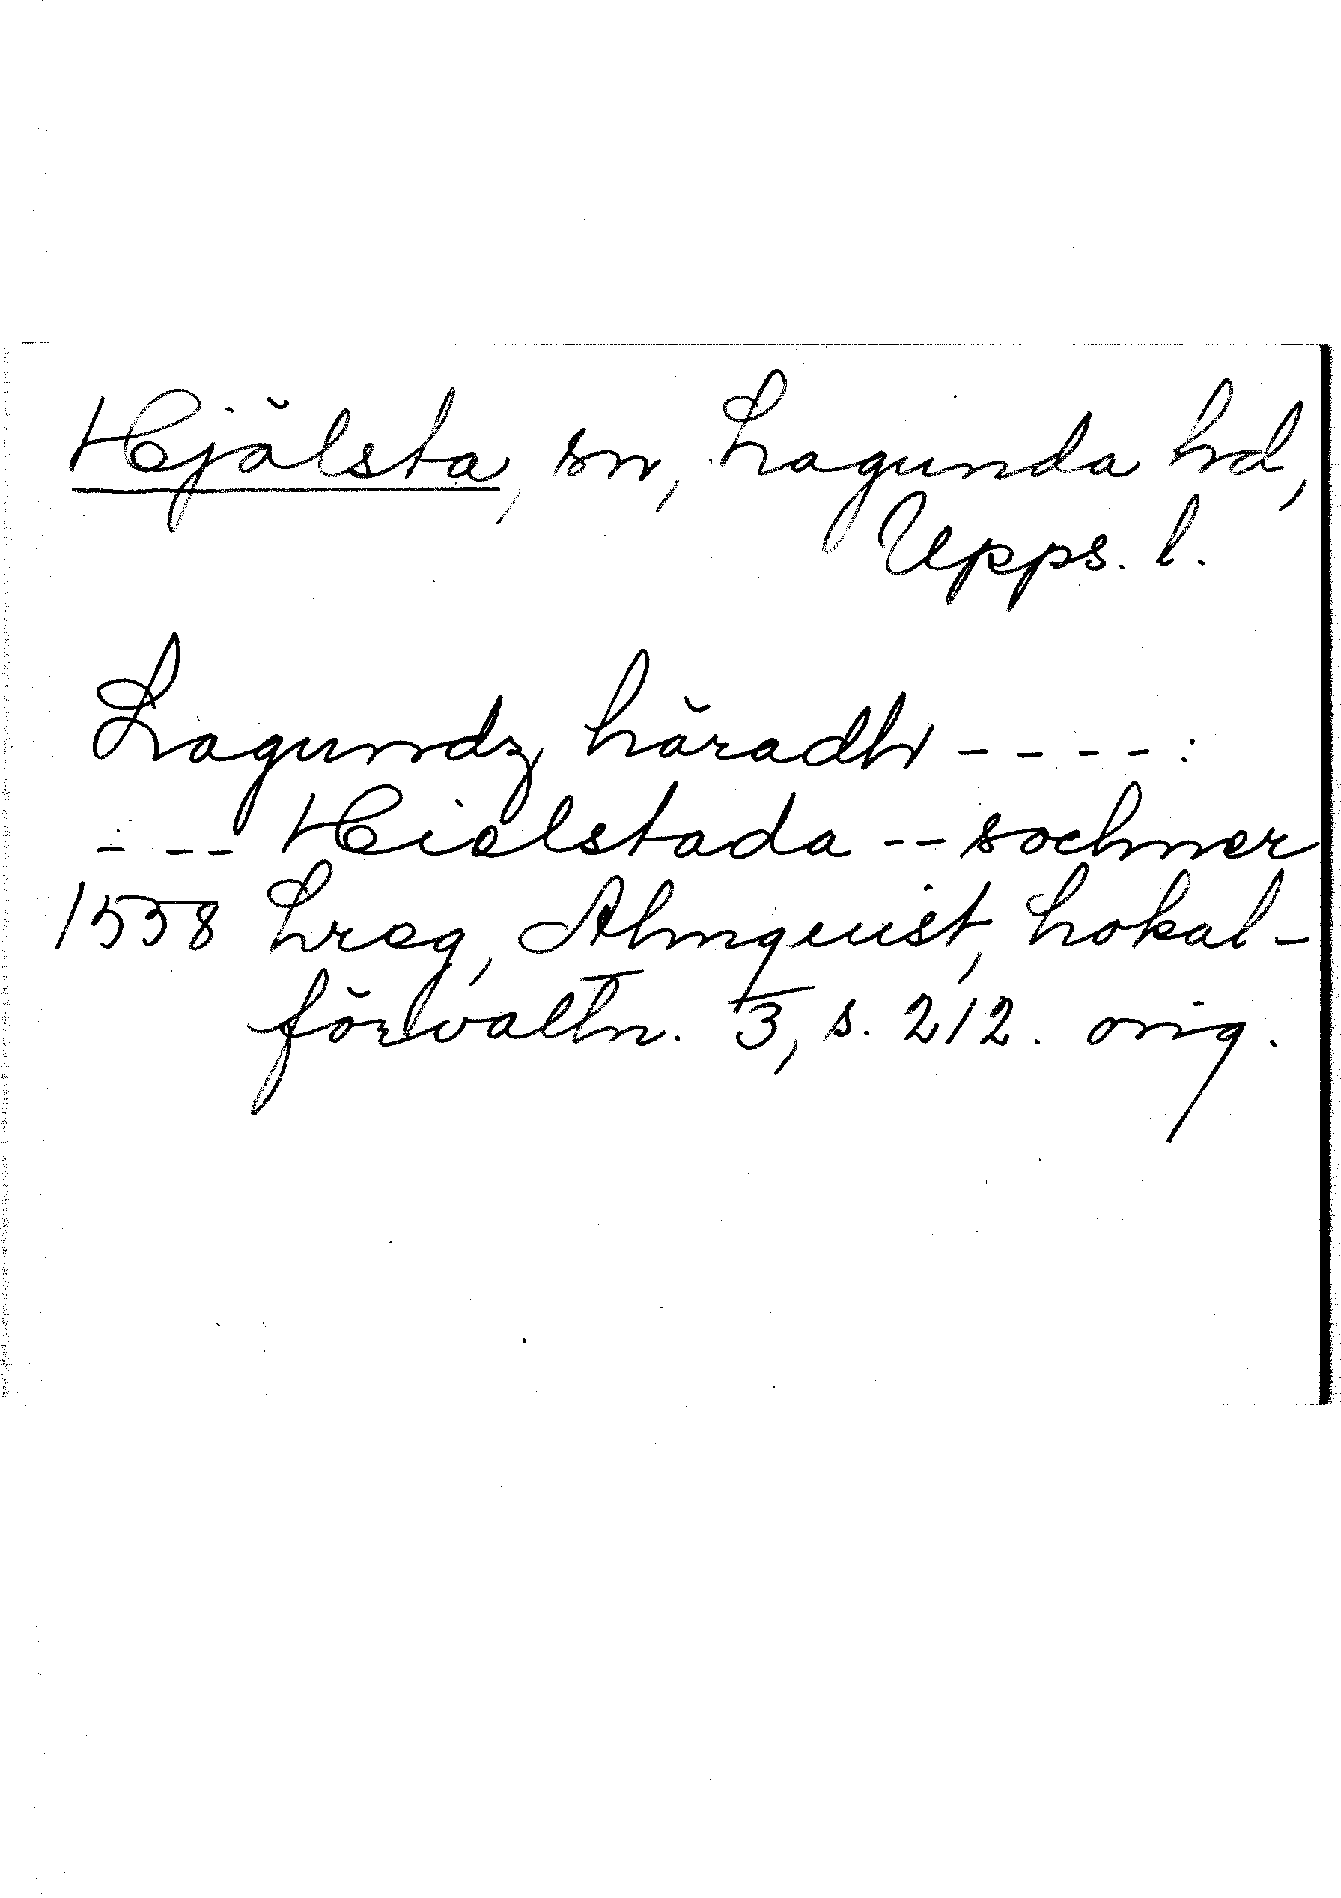 Hjälsta, sn, Lagunda hd,
Upps. l.
Lagundz häradh - - - - :
- - - Hielstada -- sochner
1558 Lreg, Almquist, Lokal-
förvaltn. 3, s. 212. orig.